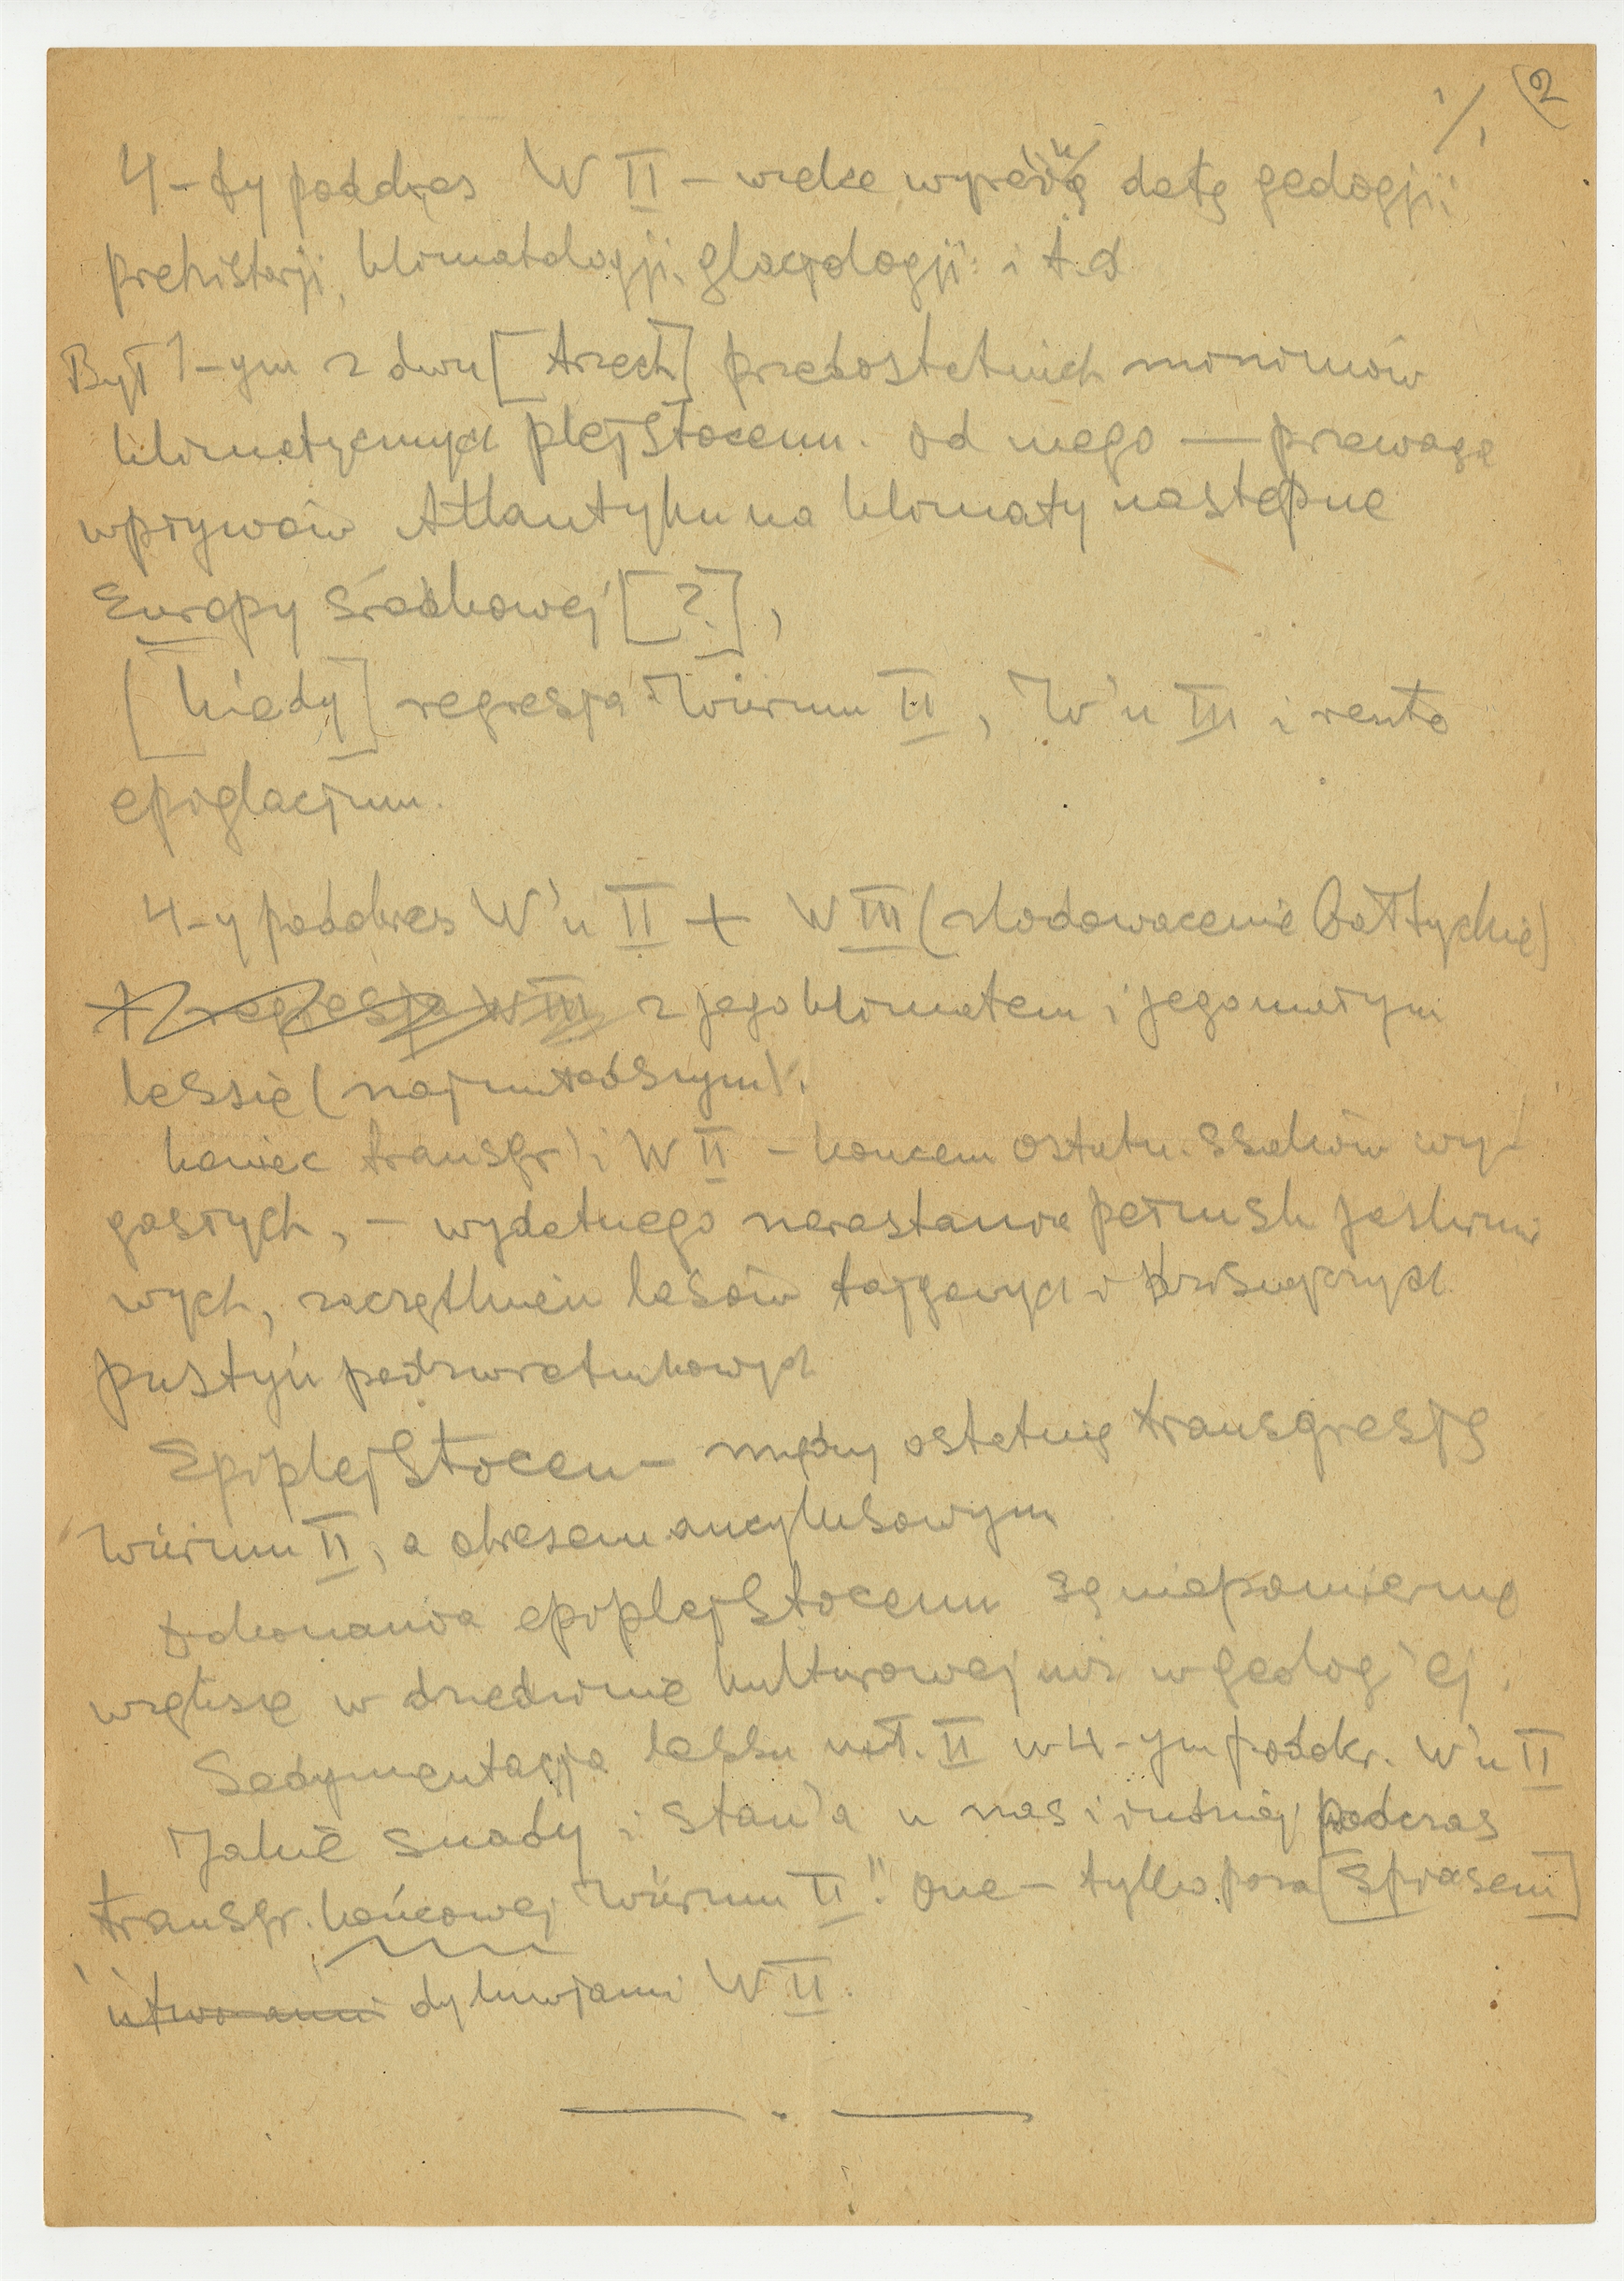 1/1 2
4-ty podokres W II – wielce wyraźną datą geologji,
prehistorji, klimatologji, glacjologji i t.d
Był 1-ym z dwu [trzech] przedostatnich minimów
klimatycznych plejstocenu. Od niego — przewaga
wpływów Atlantyku na klimaty następne
Europy środkowej [?],
[kiedy] regresja Würmu II, W'u III i reszta
epiglacjum.
4-y podokres W'u II + W III (zlodowacenie bałtyckie)
+ regresja W III z jego klimatem i jego małym
lessie (najmłodszym).
koniec transgr'i W II – końcem ostatn. ssaków wy-
gasłych, – wydatnego narastania namulisk jaskinio
wych, zaczątkiem lasów tajgowych i
pustyń podzwrotnikowych
Epiplejstocen – między ostatnią transgresją
Würmu II, a okresem ancylusowym
Dokonania epiplejstocenu są niepomiernie
większe w dziedzinie kulturowej niż w geolog'ej.
Sedymentacja lessu mł. II w 4-ym podokr. W'u II
Jakie snady i stan'a u nas i indziej podczas
transgr. końcowej Würmu II? One – tylko poza [spiasem]
utworami dyluwjami W II.